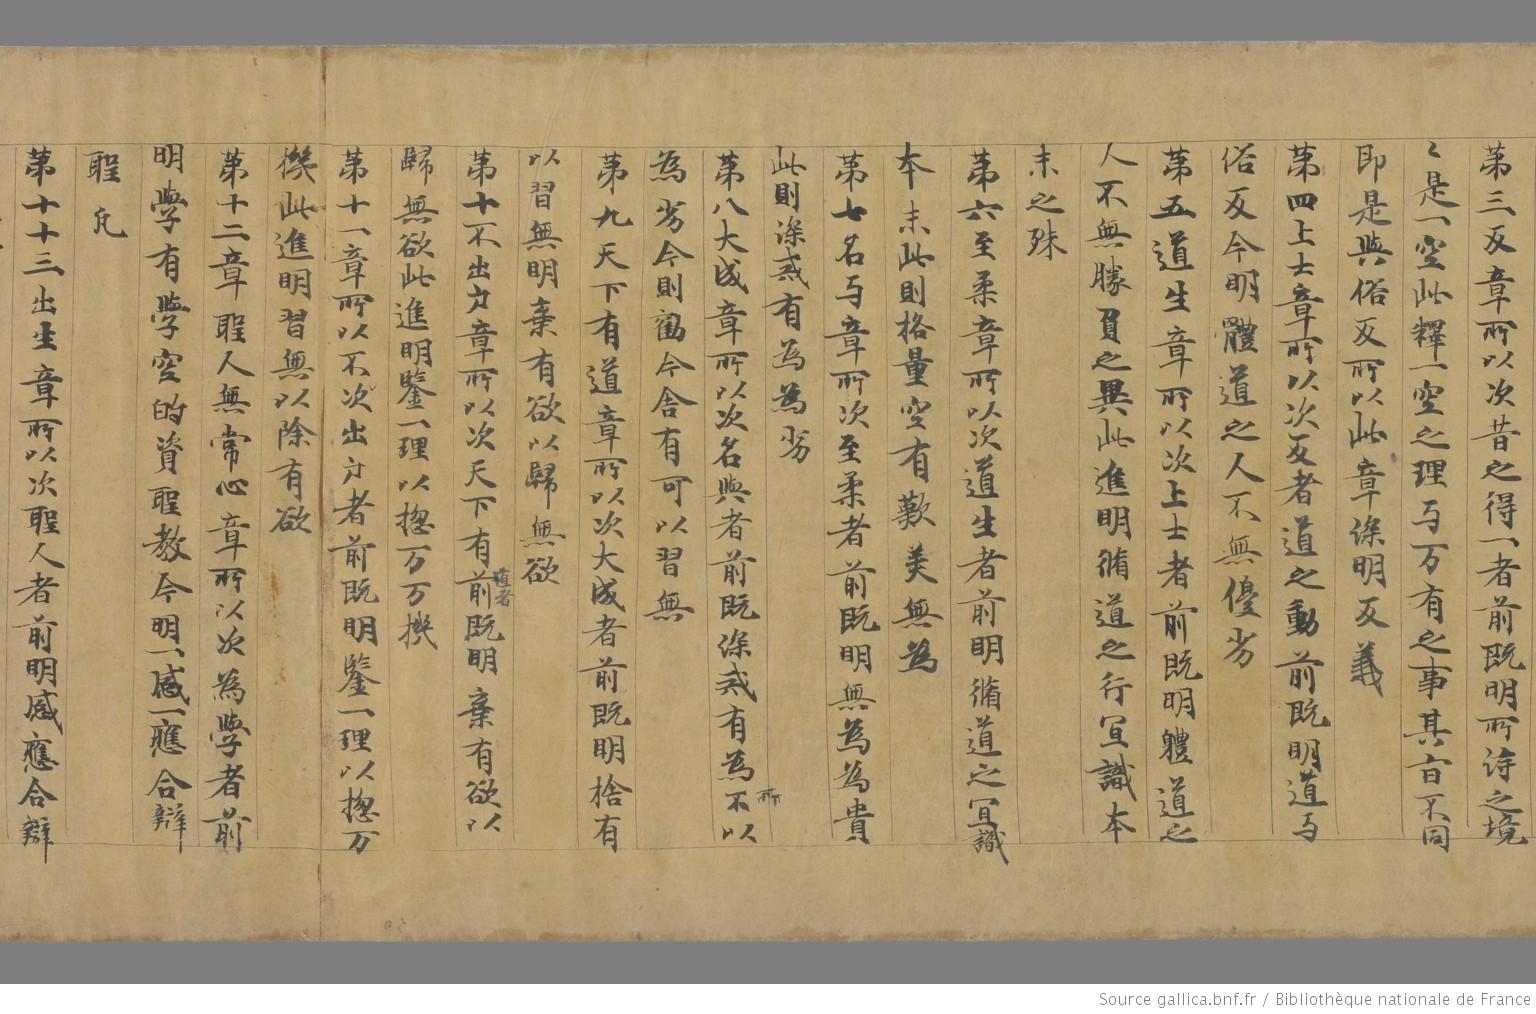 第三反章所以次昔之得一者前既明所詩之境
〻是一空此釋一空之理与万有之事其旨不同
即是與俗反所以此章深明反義
第四上士章所以次反者道之動前既明道与
俗反今明體道之人不無優劣
第五道生章所以次上士者前既明體道之
人不無勝負之異此進明脩道之行冝識本
末之殊
第六至柔章所以次道生者前明脩道之冝識
本末此則格量空有歎美無為
第七名与章所次至柔者前既明無為為貴
此則深戒有為為劣
第八大成章所以次名與者前既深戒有為不以所
為劣今則勸令舍有可以習無
第九天下有道章所以次大成者前既明捨有
以習無明棄有欲以歸無欲
第十不出户章所以次天下有道者前既明棄有欲以
歸無欲此進明鑒一理以捴万万機
第十一章所以不次出户者前既明鑒一理以捴万
機此進明習無以除有欲
第十二章聖人無常心章所以次為學者前
明學有學空的資聖教今明一感一應合辯
聖凡
第十十三出生章所以次聖人者前明感應合辯